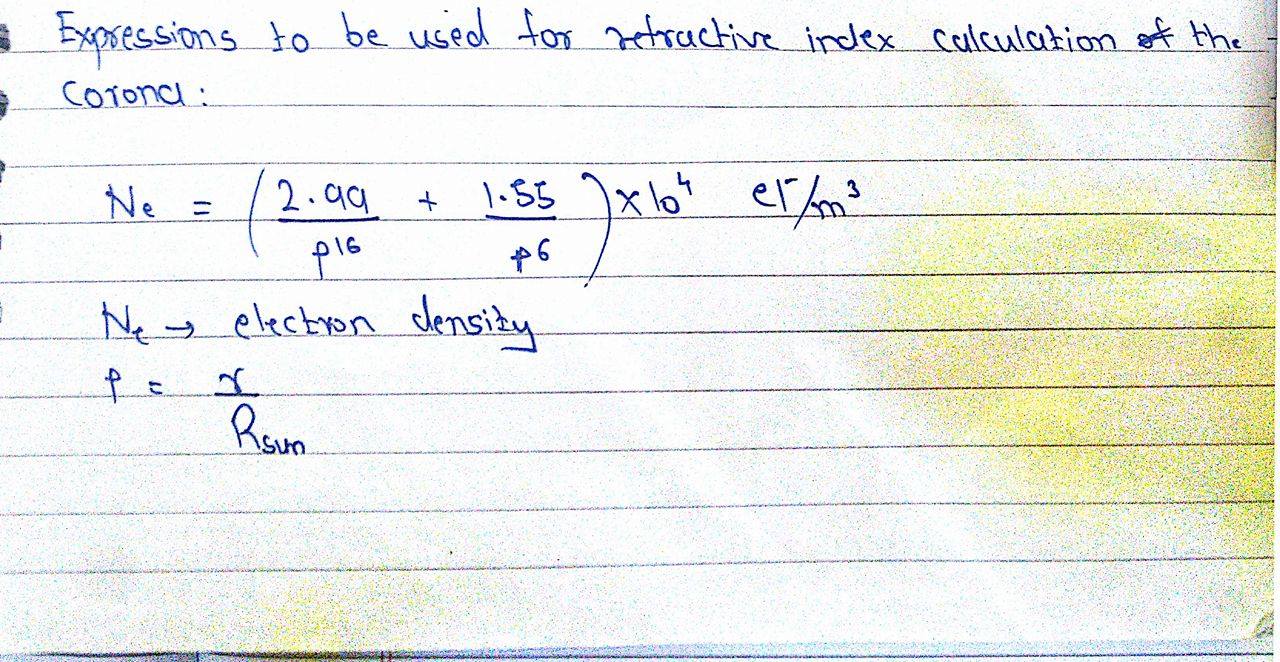 Expressions to be used for refractive index calculation of the
Corona:
Ne = (2.99/ρ^16 + 1.55/ρ^6) × 10^4 el⁻/m^3
Ne → electron density
ρ = r/Rsun